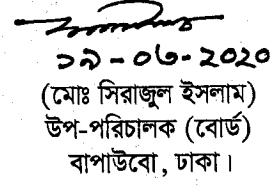 ১৯-০৩-২০২০
(মোঃ সিরাজুল ইসলাম)
উপ-পরিচালক (বোর্ড)
বাপাউবো, ঢাকা।